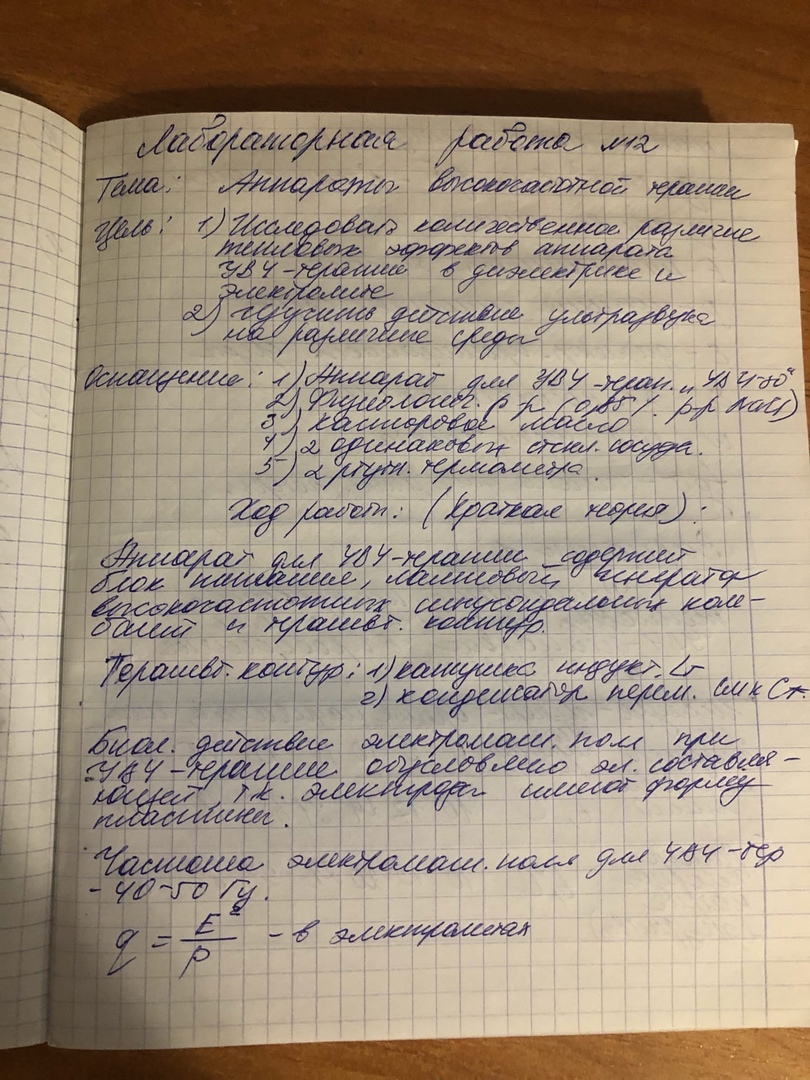 Лабораторная работа №12
Тема: Аппараты высокочастотной терапии
Цель: 1) Исследовать количественное различие
тепловых эффектов аппарата
УВЧ-терапии в диэлектрике и
электролите
2) Изучить действие ультразвука
на различные среды
Оснащение: 1) Аппарат для УВЧ-терап. „УВЧ-80"
2) Физиолог. р-р (0,85% р-р NaCl)
3) Касторовое масло
4) 2 одинаковых стекл. сосуда.
5) 2 ртутн. термометра.
Ход работы: (Краткая теория):
Аппарат для УВЧ-терапии содержит
блок питания, ламповый генератор
высокочастотных синусоидальных коле-
баний и терапевт. контур.
Терапевт. контур: 1) катушка индукт. Lт
2) конденсатор перем. емк Cт.
Биол. действие электромагн. поля при
УВЧ-терапии обусловлено эл. составля-
ющей, т.к. электроды имеют форму
пластины.
Частота электромагн. поля для УВЧ-тер
- 40-50 Гц.
q = E²/ρ - в электролитах